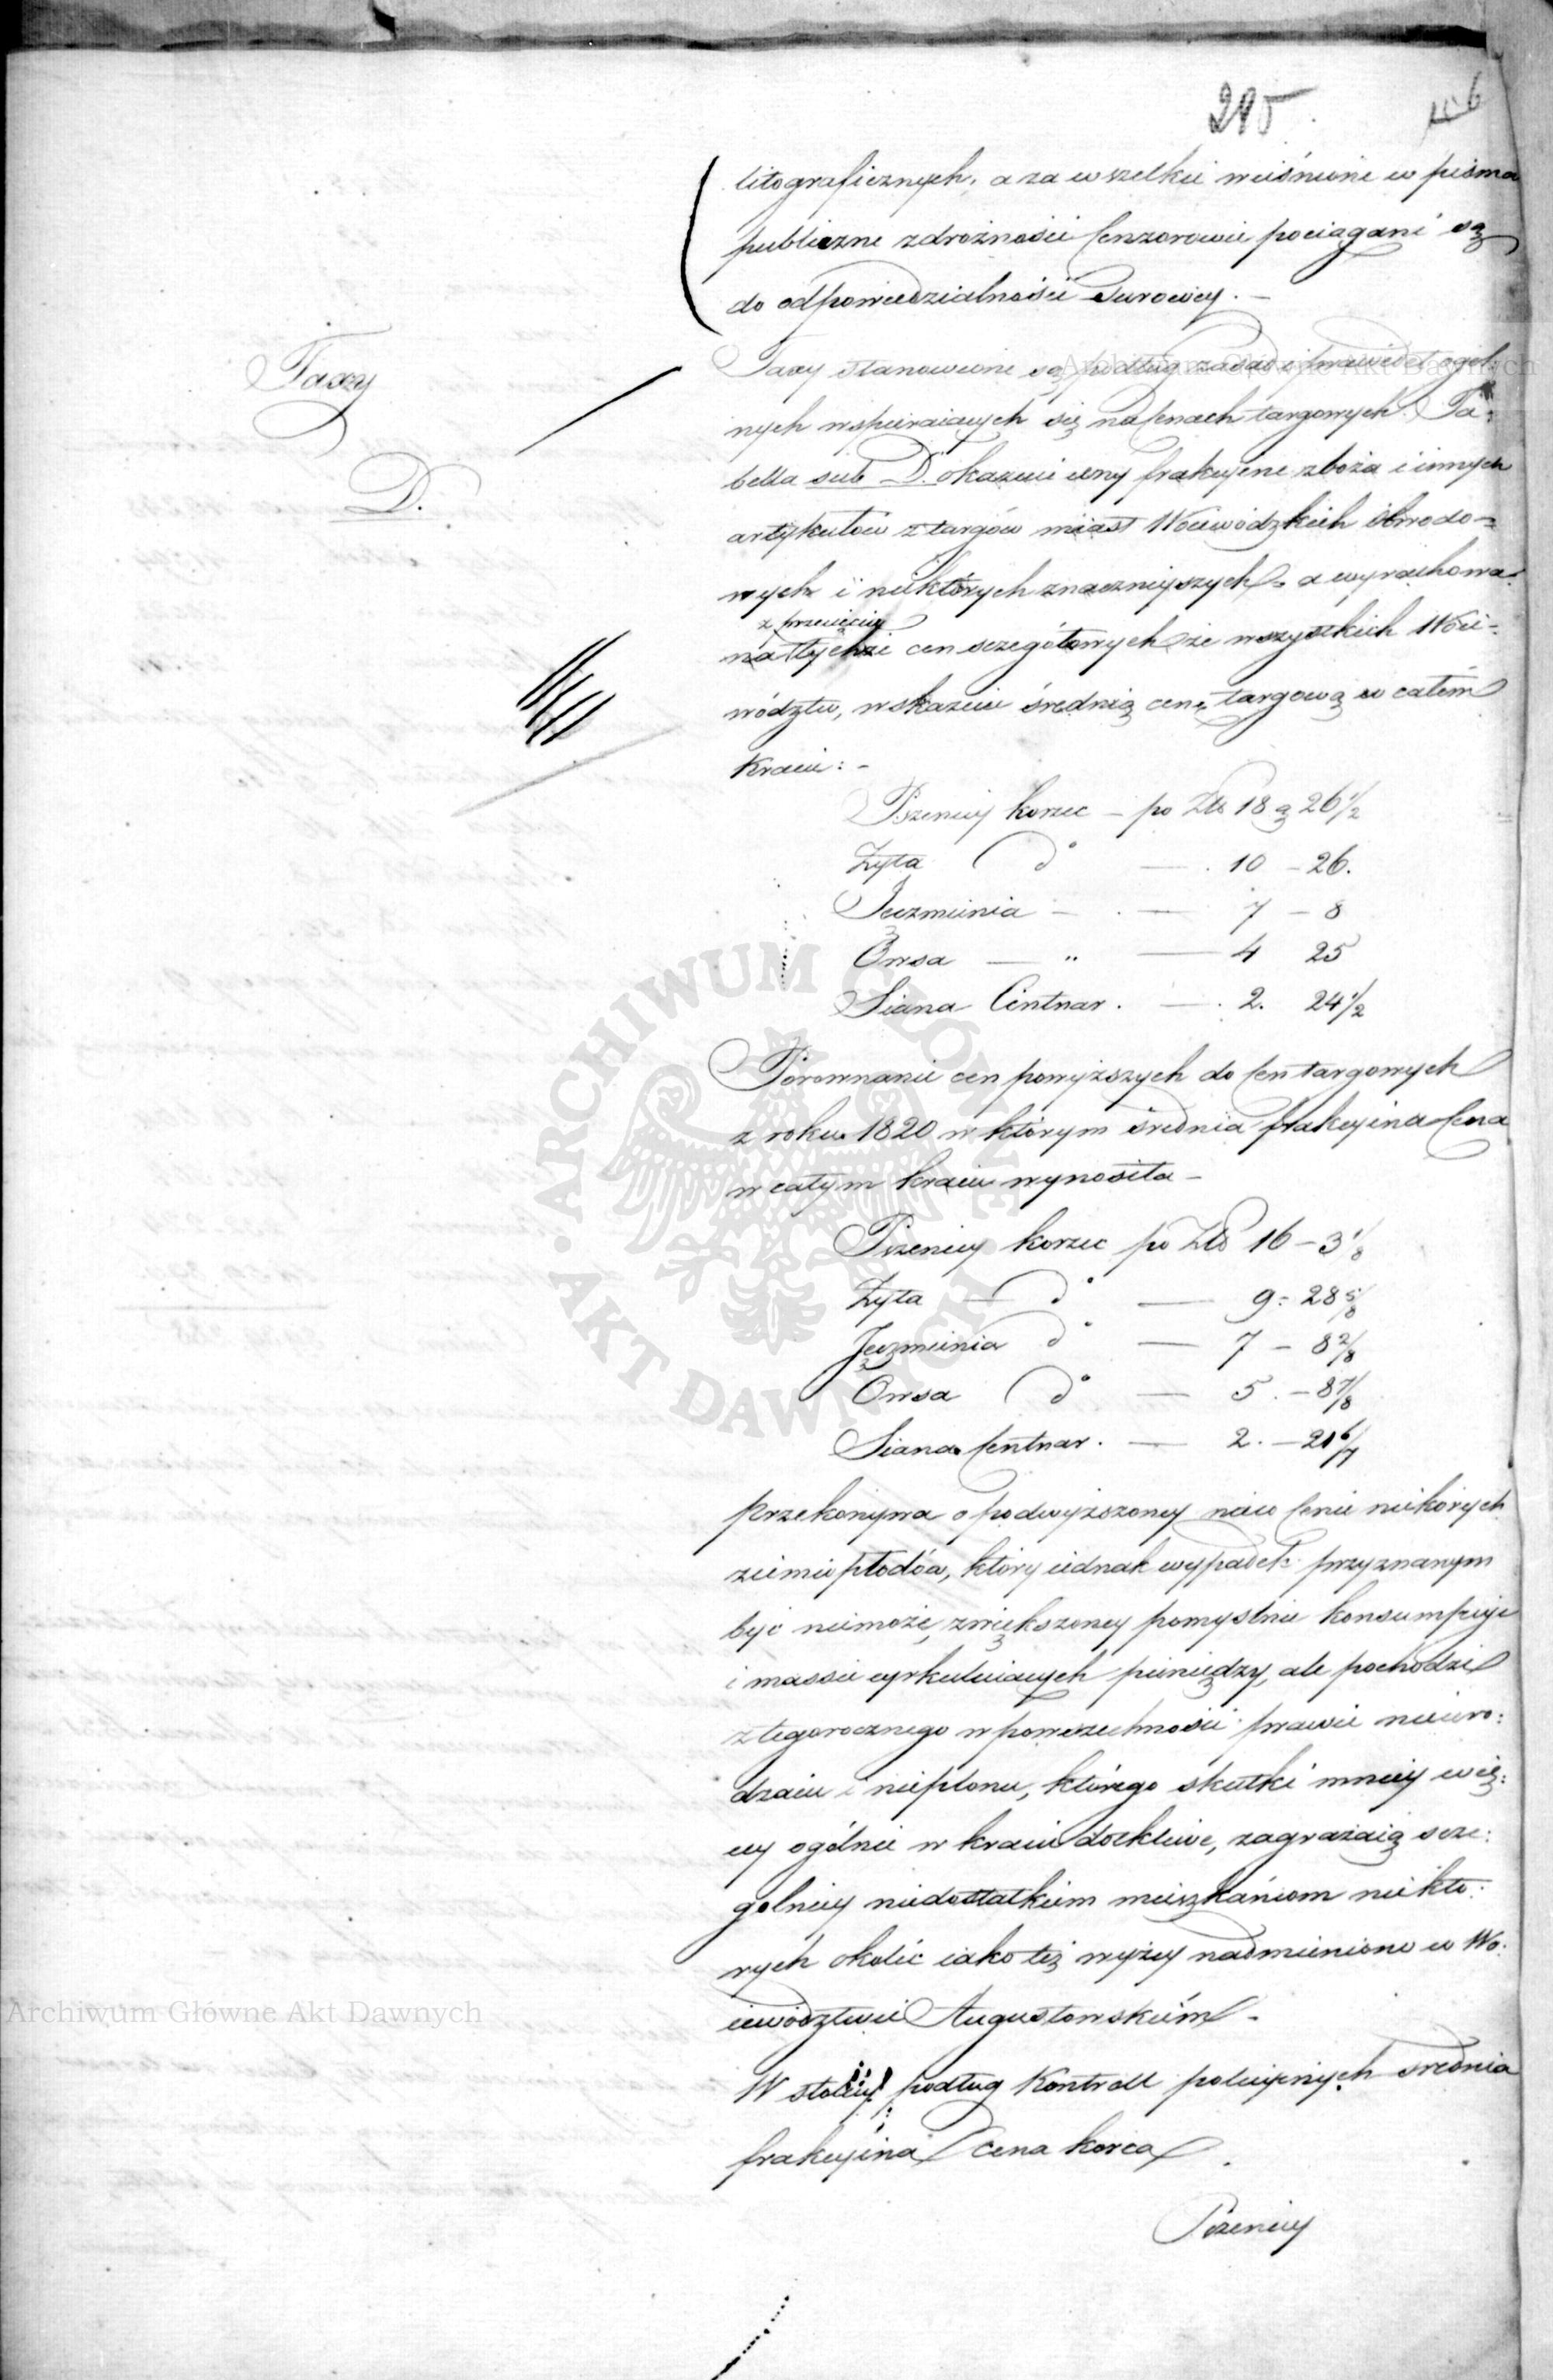 295.
litograficznych, a za wszelkie wciśnione w pisma
publiczne zdrożności Cenzorowie pociągani są
do odpowiedzialności surowey. –
Taxy
Taxy stanowione są podług zasad i prawideł ogól-
nych wspieraiących się na Cenach targowych. Ta-
D.
bella sub D. okazuie ceny frakcyjne zboża i innych
artykułów z targów miast Woiewódzkich Obwodo-
wych i niektórych znacznieyszych – a wyrachowa-
z przecięcia
na tychże cen sczegółowych ze wszystkich Woie-
wództw, wskazuie średnią cenę targową w całem
Kraiu: –
Pszenicy korzec – po Złt 18 g 26 1/2
Żyta do — . 10 – 26.
Jęczmienia – . — 7 – 8
Owsa — " — 4 25
Siana Centnar . — . 2. 24 1/2
Porownanie cen powyższych do Cen targowych
z roku 1820 w którym średnia frakcyina Cena
w całym kraiu wynosiła –
Pszenicy korzec po Złt 16 – 3 1/8
Żyta — do — 9 – 28 5/8
Jęczmienia do — 7 – 8 2/8
Owsa do — 5 . – 8 7/8
Siana Centnar . — 2. – 21 6/7
przekonywa o podwyższoney nieco Cenie niektórych
ziemiopłodów, który iednak wypadek przyznanym
być niemoże, zwiększoney pomyślnie konsumpcyi
i massie cyrkuluiących pieniędzy, ale pochodzi
z tegorocznego w powszechności prawie nieuro-
dzaiu i nieplonu, którego skutki mniey wię-
cey ogólnie w kraiu dotkliwe, zagrażaią scze-
gólniey niedostatkiem mieszkańcom niektó-
rych okolic iako też wyżey nadmieniono w Wo-
iewództwie Augustowskiém –
W stolicy podług Kontroll policyinych średnia
frakcyina cena korca
Pszenicy
Archiwum Główne Akt Dawnych
Archiwum Główne Akt Dawnych
ARCHIWUM GŁÓWNE AKT DAWNYCH